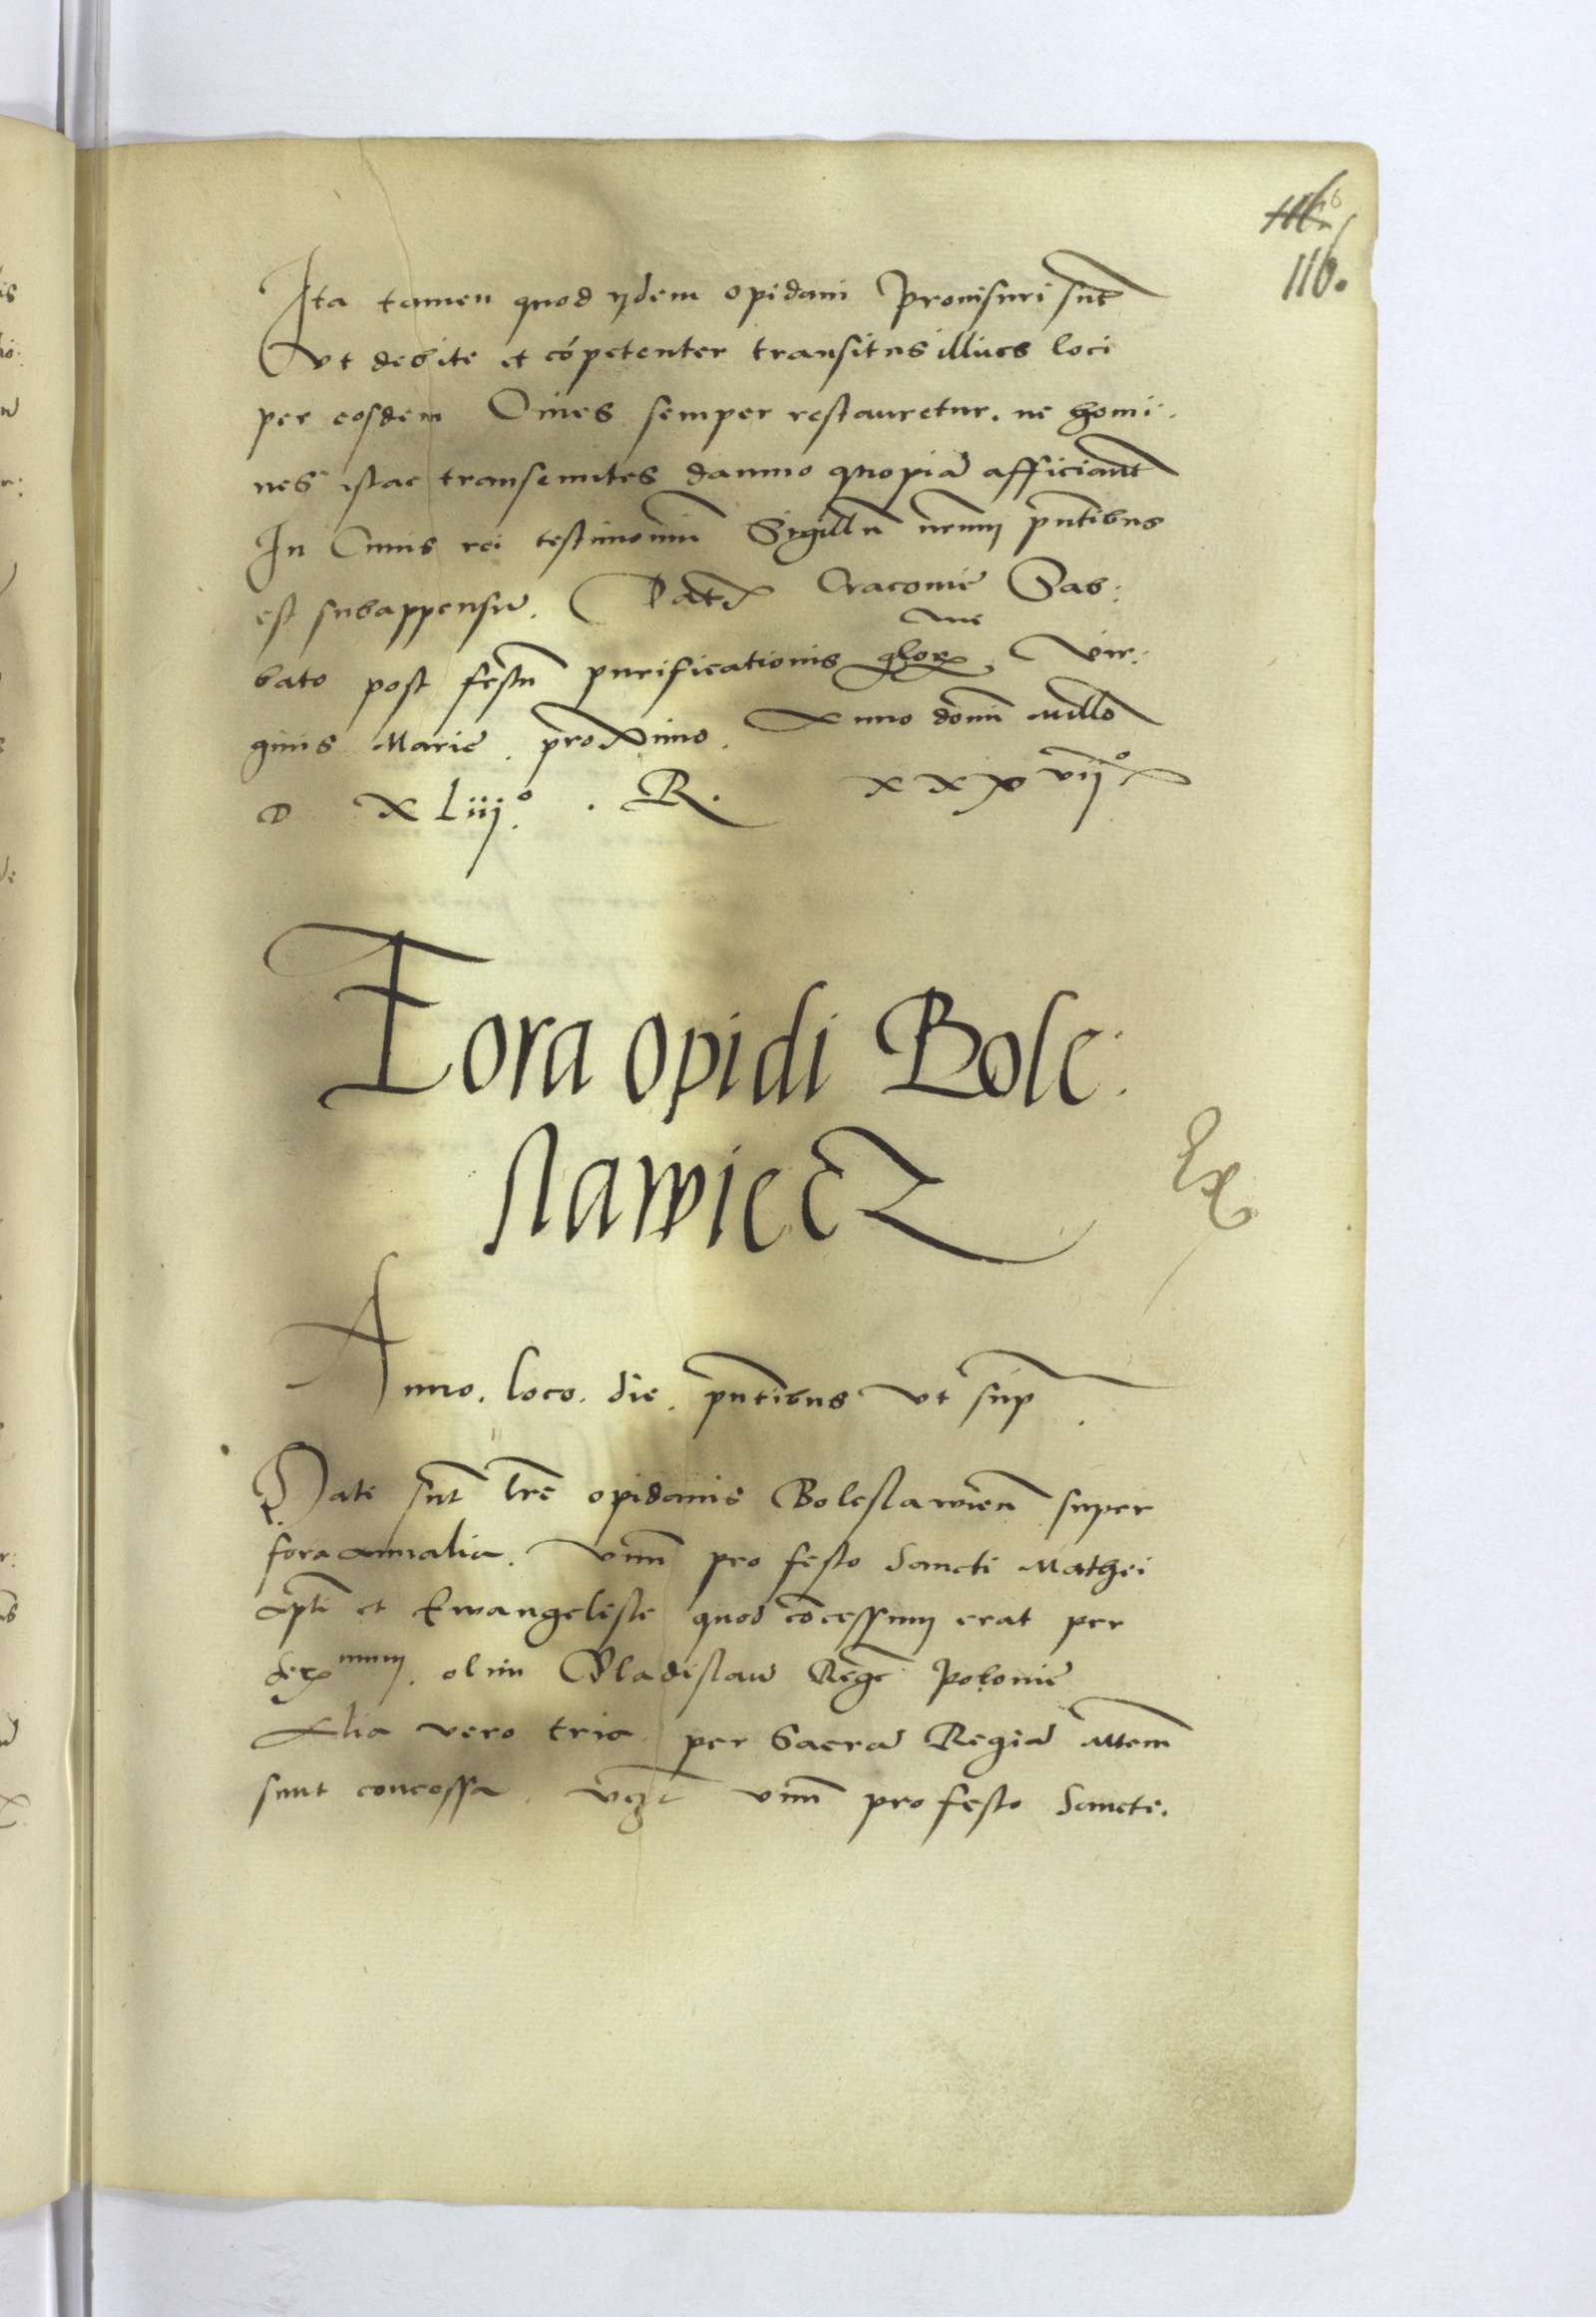 116
116.
Ita tamen quod ijdem opidani provisuri sūt
Vt debite et cōpetenter transitus illius loci
per eosdem Cives semper restauretur. ne homi:
nes istac transeuntes damno quopiā afficiant̄
In Cuius rei testimoniū Sigillū nr̄um pn̄tibus
est subappensū. Dat̄ Cracovie Sab:
bato post festū purificationis glor̄ me Vir:
ginis Marie. proximo. Anno domī Millō
D XLiij.º . R. xxxvijº
Fora opidi Bole:
slawiecz
Ex
Anno. loco. die. pn̄tibus vt sup̄.
Date sūt lrē opidanis Boleslawien̄ super
fora annalia. Vnū pro festo Sancti Mathei
apl̄i et Ewangeliste quod cōcessum erat per
Ser mum. olim Vladislaū Regē Polonie
Alia vero tria per Sacrā Regiā Mtem
sunt concessa. vcz̄t vnū pro festo Sancte.